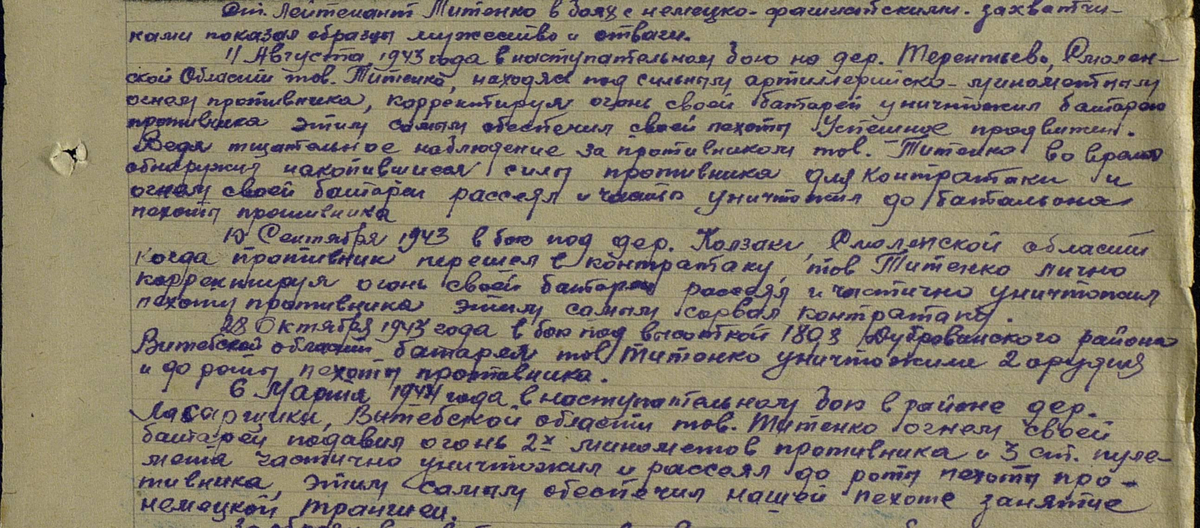 Ст. Лейтенант Титенко в боях с немецко-фашистскими захватчи-
ками показал образцы мужество и отваги.
11 Августа 1943 года в наступательном бою на дер. Терентьево, Смолен-
ской Области тов. Титенко, находясь под сильным артиллерийско-минометным
огнем противника, корректируя огонь своей батареи уничтожил батарею
противника этим самым обеспечил своей пехоты успешное продвижен.
Ведя тщательное наблюдение за противником тов. Титенко во время
обнаружил накопившиеся силы противника для контратаки и
огнем своей батареи рассеял и часто уничтожил до батальона
пехоты противника
10 Сентября 1943 в бою под дер. Козаки Смоленской области
когда противник перешел в контратаку, тов Титенко лично
корректируя огонь своей батареи рассеял и частично уничтожил
пехоту противника этим самым сорвал контратаку.
28 Октября 1943 года в бою под высоткой 189,3 Дубровенского района
Витебской области батарея тов Титенко уничтожили 2 орудия
и до роты пехоты противника.
6 Марта 1944 года в наступательном бою в районе дер.
Витебской области тов. Титенко огнем своей
батареи подавил огонь 2х минометов противника и 3 ст. пуле-
мета частично уничтожил и рассеял до роты пехоты про-
тивника, этим самым обеспечил нашей пехоте занятие
немецкой траншеи.